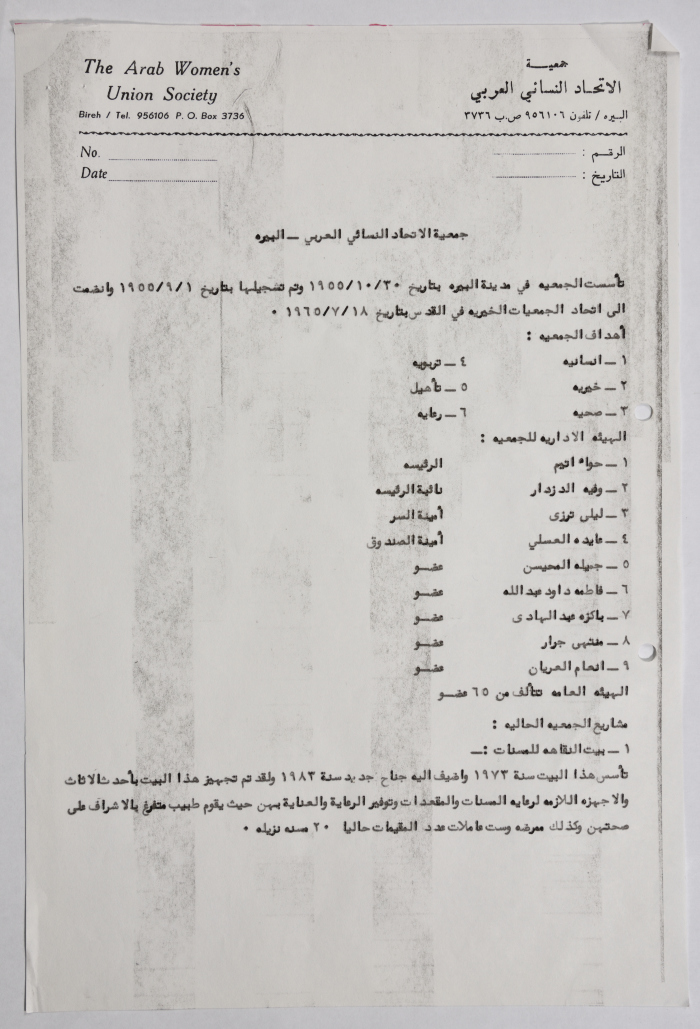 The Arab Women's
Union Society
Bireh / Tel. 956106 P. O. Box 3736
جمعيـــة
الاتحاد النسائي العربي
البيره / تلفون ٩٥٦١٠٦ ص.ب ٣٧٣٦
No.
Date
الرقم :
التاريخ :
جمعية الاتحاد النسائي العربي ــ البيره
تأسست الجمعيه في مدينة البيره بتاريخ ١٩٥٥/١٠/٣٠ وتم تسجيلها بتاريخ ١٩٥٥/٩/١ وانضمت
الى اتحاد الجمعيات الخيريه في القدس بتاريخ ١٩٦٥/٧/١٨ ٠
أهداف الجمعيه :
١ ــ انسانيه ٤ ــ تربويه
٢ ــ خيريه ٥ ــ تأهيل
٣ ــ صحيه ٦ ــ رعايه
الهيئه الاداريه للجمعيه :
١ ــ حواء اتيم الرئيسه
٢ ــ وفيه الدزدار نائبة الرئيسه
٣ ــ ليلى ترزى أمينة السر
٤ ــ عايده العسلي أمينة الصندوق
٥ ــ جميله المحيسن عضــو
٦ ــ فاطمه داود عبدالله عضــو
٧ ــ باكزه عبد الهادى عضــو
٨ ــ منتهى جرار عضــو
٩ ــ انعام العريان عضــو
الهيئه العامه تتألف من ٦٥ عضــو
مشاريع الجمعيه الحاليه :
١ ــ بيت النقاهه للمسنات :ــ
تأسس هذا البيت سنة ١٩٧٣ واضيف اليه جناح جديد سنة ١٩٨٣ ولقد تم تجهيز هذا البيت بأحدث الاثاث
والاجهزه اللازمه لرعايه المسنات والمقعدات وتوفير الرعاية والعناية بهن حيث يقوم طبيب متفرغ بالاشراف على
صحتهن وكذلك ممرضه وست عاملات عدد المقيمات حاليا ٢٠ مسنه نزيله ٠